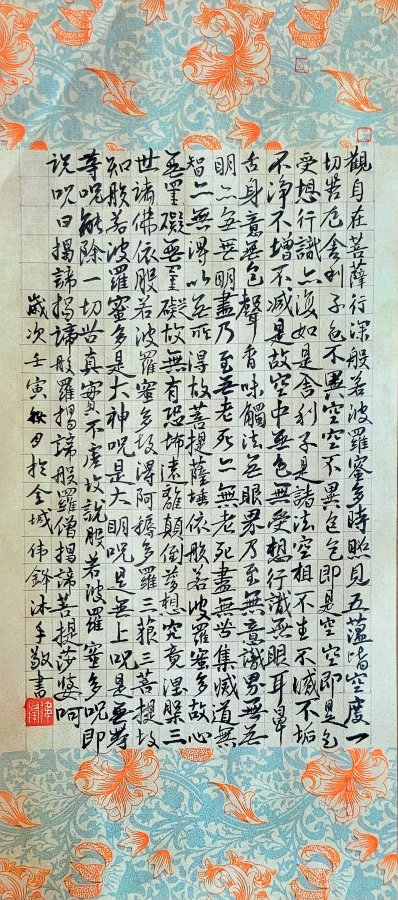 觀自在菩薩行深般若波羅蜜多時照見五蘊皆空度一
切苦厄舍利子色不異空空不異色色即是空空即是色
受想行識亦復如是舍利子是諸法空相不生不滅不垢
不净不增不減是故空中無色無受想行識無眼耳鼻
舌身意無色聲香味觸法無眼界乃至無意識界無無
明亦無無明盡乃至無老死亦無老死盡無苦集滅道無
智亦無得以無所得故菩提薩埵依般若波羅蜜多故心
無罣礙無罣礙故無有恐怖遠離顛倒夢想究竟涅槃三
世諸佛依般若波羅蜜多故得阿耨多羅三藐三菩提故
知般若波羅蜜多是大神呪是大明呪是無上呪是無等
等呪能除一切苦真實不虛故說般若波羅蜜多呪即
說呪曰揭諦揭諦般羅揭諦般羅僧揭諦菩提莎婆呵
歲次壬寅秋月於金城伟鋒沐手敬書